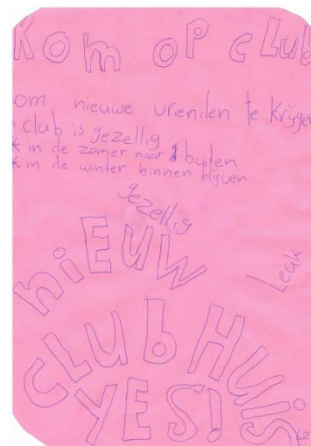 KOM OP CLUB
om nieuwe vrienden te krijgen
club is gezellig
k in de zomer naar buiten
k in de winter binnen blijven
gezellig
Leuk
NIEUW
CLUBHUIS
YES!